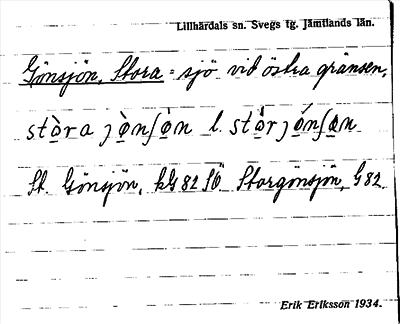 Lillhärdals sn. Svegs tg. Jämtlands län.
Gönsjön, Stora = sjö vid östra gränsen,
stòra jònʃòn l. stòrjónʃøn
St. Gönsjön, kG 82 SÖ Storgönsjön, G 82
Erik Eriksson 1934.